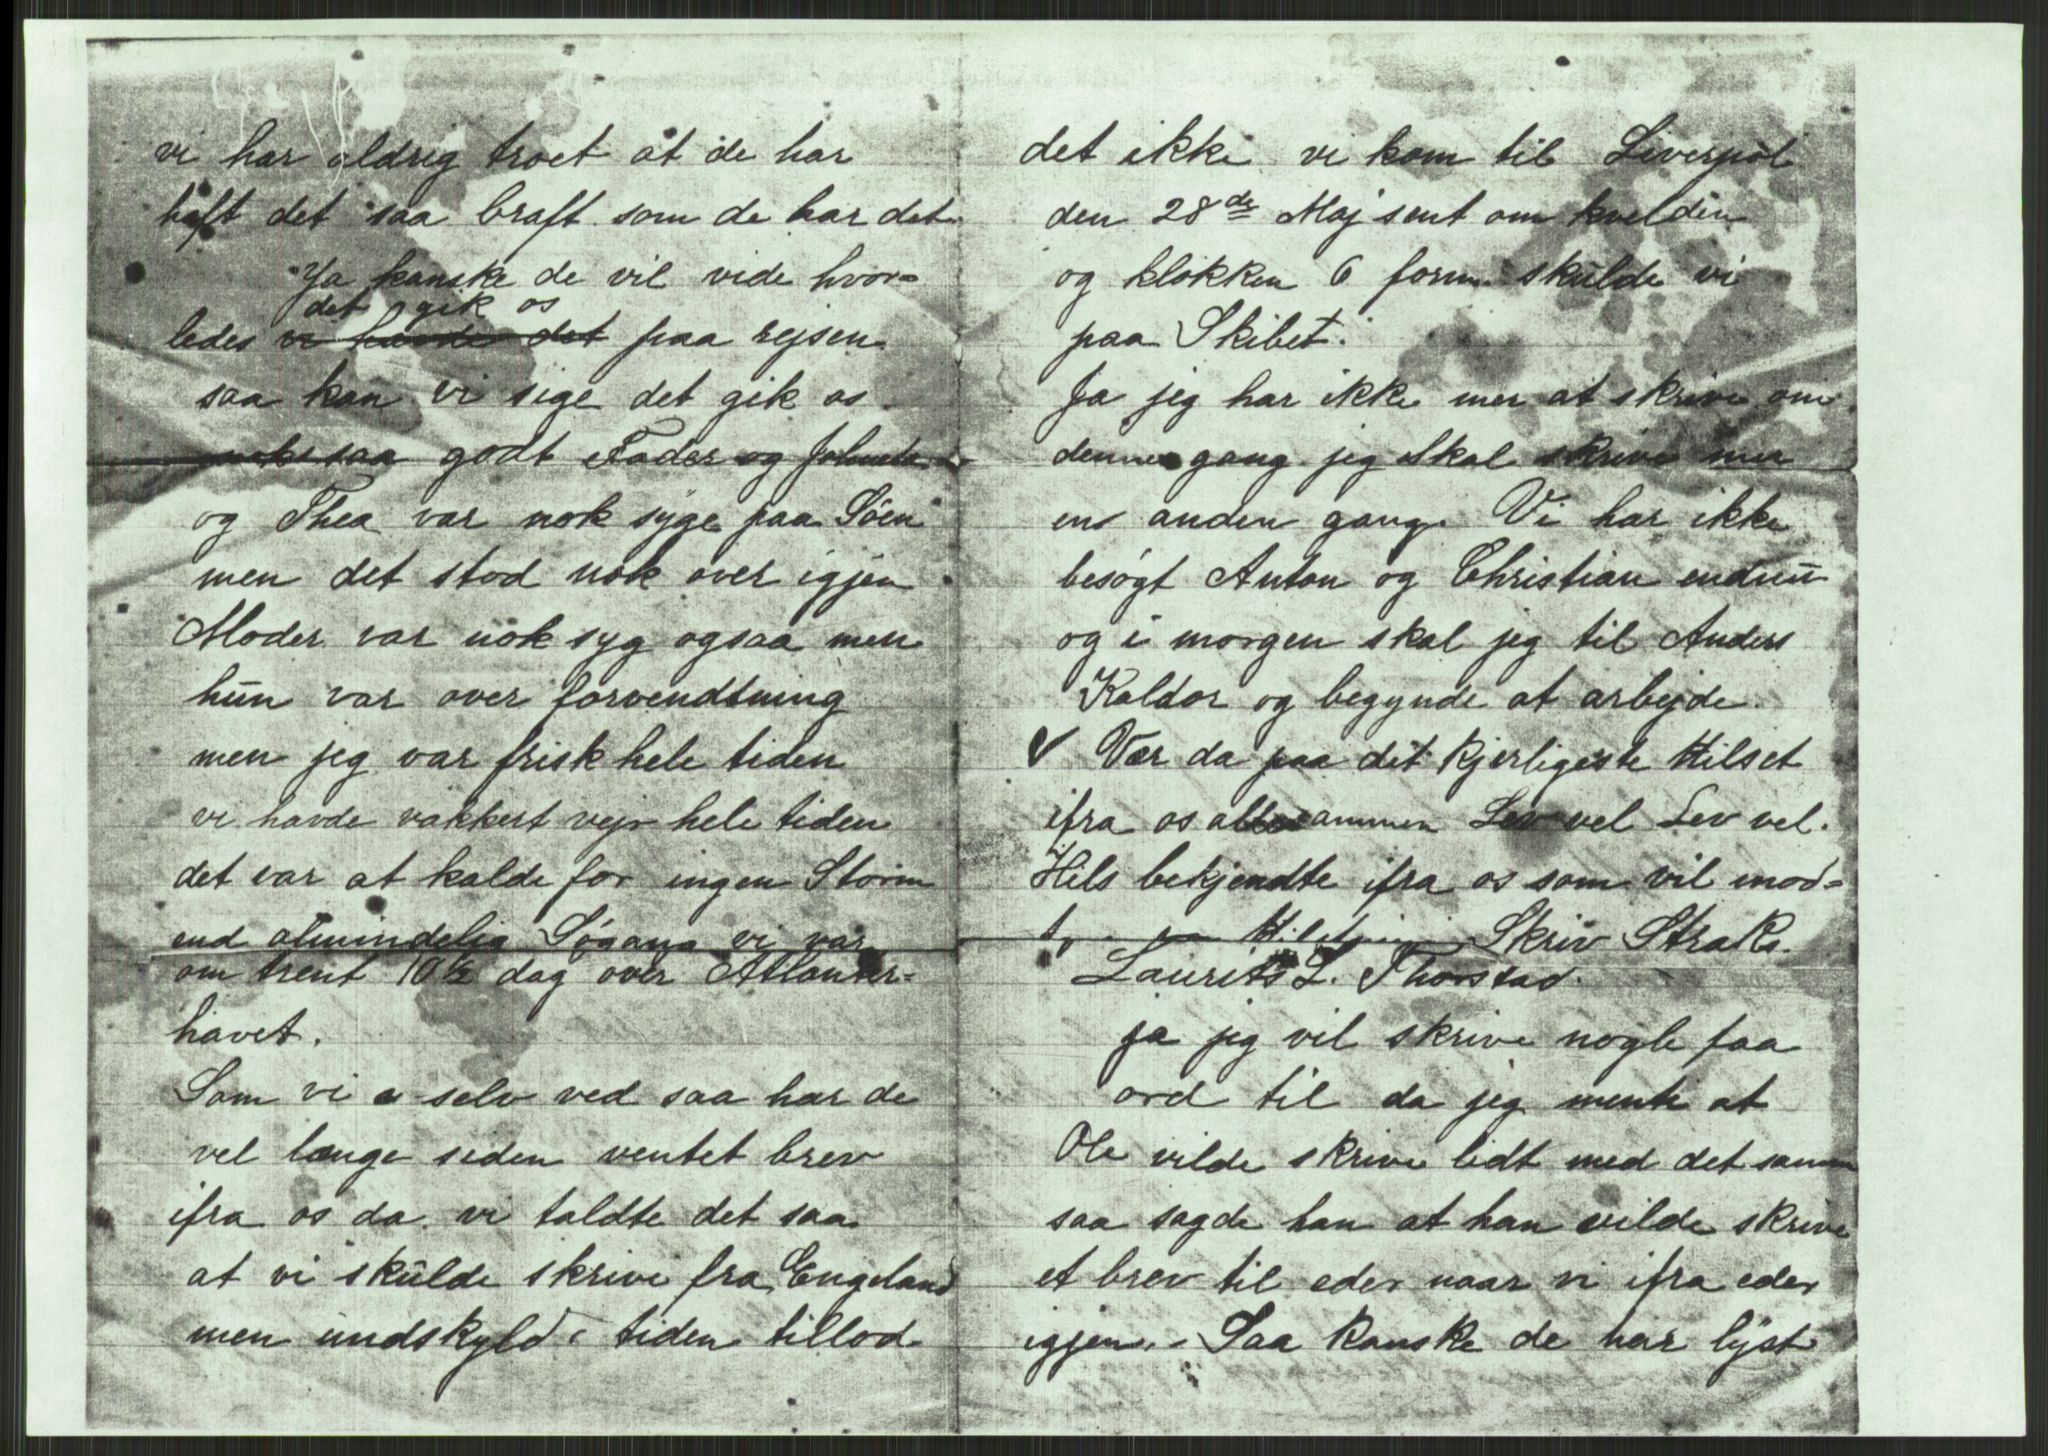 vi har aldrig troet at de har
haft det saa braft som de har det
Ja kanske de vil vide hvor=
det gik os
ledes vi havde det paa rejsen
saa kan vi sige det gik os
nokksaa godt Fader og
og Thea var nok syge paa Söen
men det stod nok over igjen
Moder var nok syg ogsaa men
hun var over forvendtning
men jeg var frisk hele tiden
vi havde vakkert vejr hele tiden
det var at kalde for ingen Storm
end almindelig Søgang vi var
om trent 10½ dag over Atlanter=
havet.
Som vi selv ved saa har de
vel længe siden ventet brev
ifra os da vi taldte det saa
at vi skulde skrive fra Engeland
men undskyld tiden tillod
det ikke vi kom til Liverpol
den 28de Maj sent om kvelden
og klokken 6 form. skulde vi
paa Skibet.
Ja jeg har ikke mer at skrive om
denne gang jeg skal skrive mer
en anden gang. Vi har ikke
besøgt Anton og Christian endnu
og i morgen skal jeg til Anders
Kaldor og begynde at arbejde.
Vær da paa det kjerligeste Hilset
ifra os allesammen Lev vel Lev vel.
Hils bekjendte ifra os som vil mod=
Skriv Straks.
Laurits L. Thorstad.
ja jeg vil skrive nogle faa
ord til da jeg mente at
Ole vilde skrive lidt med det samme
saa sagde han at han vilde skrive
et brev til eder naar vi ifra eder
igjen. - Saa kanske de har lyst